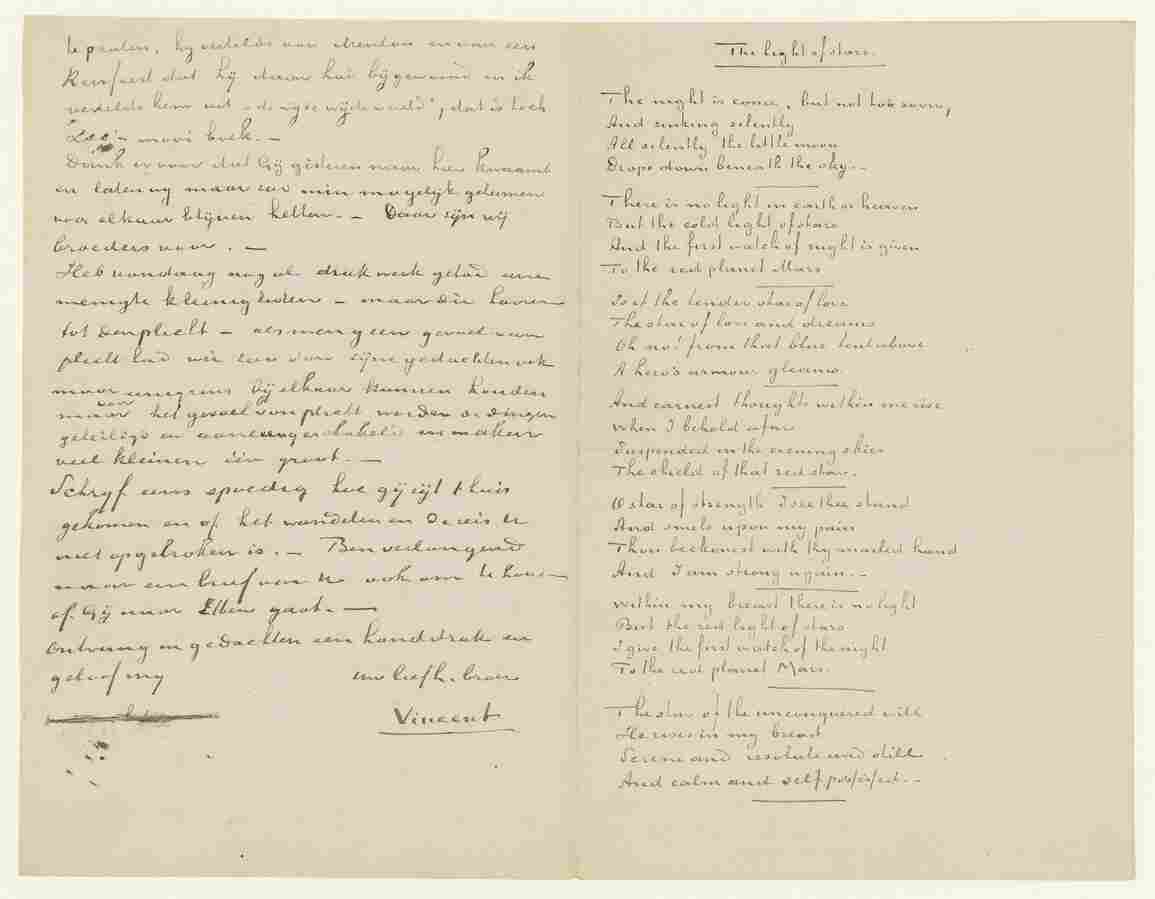 te praten, hij vertelde van Drenthe en van een
Kersfeest dat hij daar had bijgewoond en ik
vertelde hem uit „de wijde wijde wereld", dat is toch
een mooi boek. —
Dank er voor dat Gij gisteren naar hier kwaamt
en laten wij maar zoo min mogelijk geheimen
voor elkaar blijven hebben. — Daar zijn wij
broeders voor. —
Heb vandaag nog al druk werk gehad eene
menigte kleinigheden — maar die hooren
tot den plicht — als men geen gevoel van
plicht had wie zou dan zijne gedachten ook
maar eenigzins bij elkaar kunnen houden
maar door het gevoel van plicht worden de dingen
geheiligd en aaneengeschakeld en maken
veel kleinen één groot. —
Schryf eens spoedig hoe gij zijt thuis
gekomen en of het wandelen en de reis U
niet opgebroken is. — Ben verlangend
naar een brief van U ook om te hooren
of Gij naar Etten gaat. —
Ontvang in gedachten een handdruk en
geloof my
uw liefh. broer
Vincent
The light of stars.
The night is come, but not too soon,
And sinking silently
All silently the little moon
Drops down beneath the sky. —
There is no light in earth or heaven
But the cold light of stars
And the first watch of night is given
To the red planet Mars
Is it the tender star of love
The star of love and dreams
Oh no! from that blue tent above
A hero's armour gleams.
And earnest thoughts within me rise
When I behold afar
Suspended in the evening skies
The shield of that red star.
O star of strength I see thee stand
And smile upon my pain
Thou beckonest with thy mailed hand
And I am strong again. —
Within my breast there is no light
But the red light of stars
I give the first watch of the night
To the red planet Mars.
The star of the unconquered will
He rises in my breast
Serene and resolute and still
And calm and self possessed. —